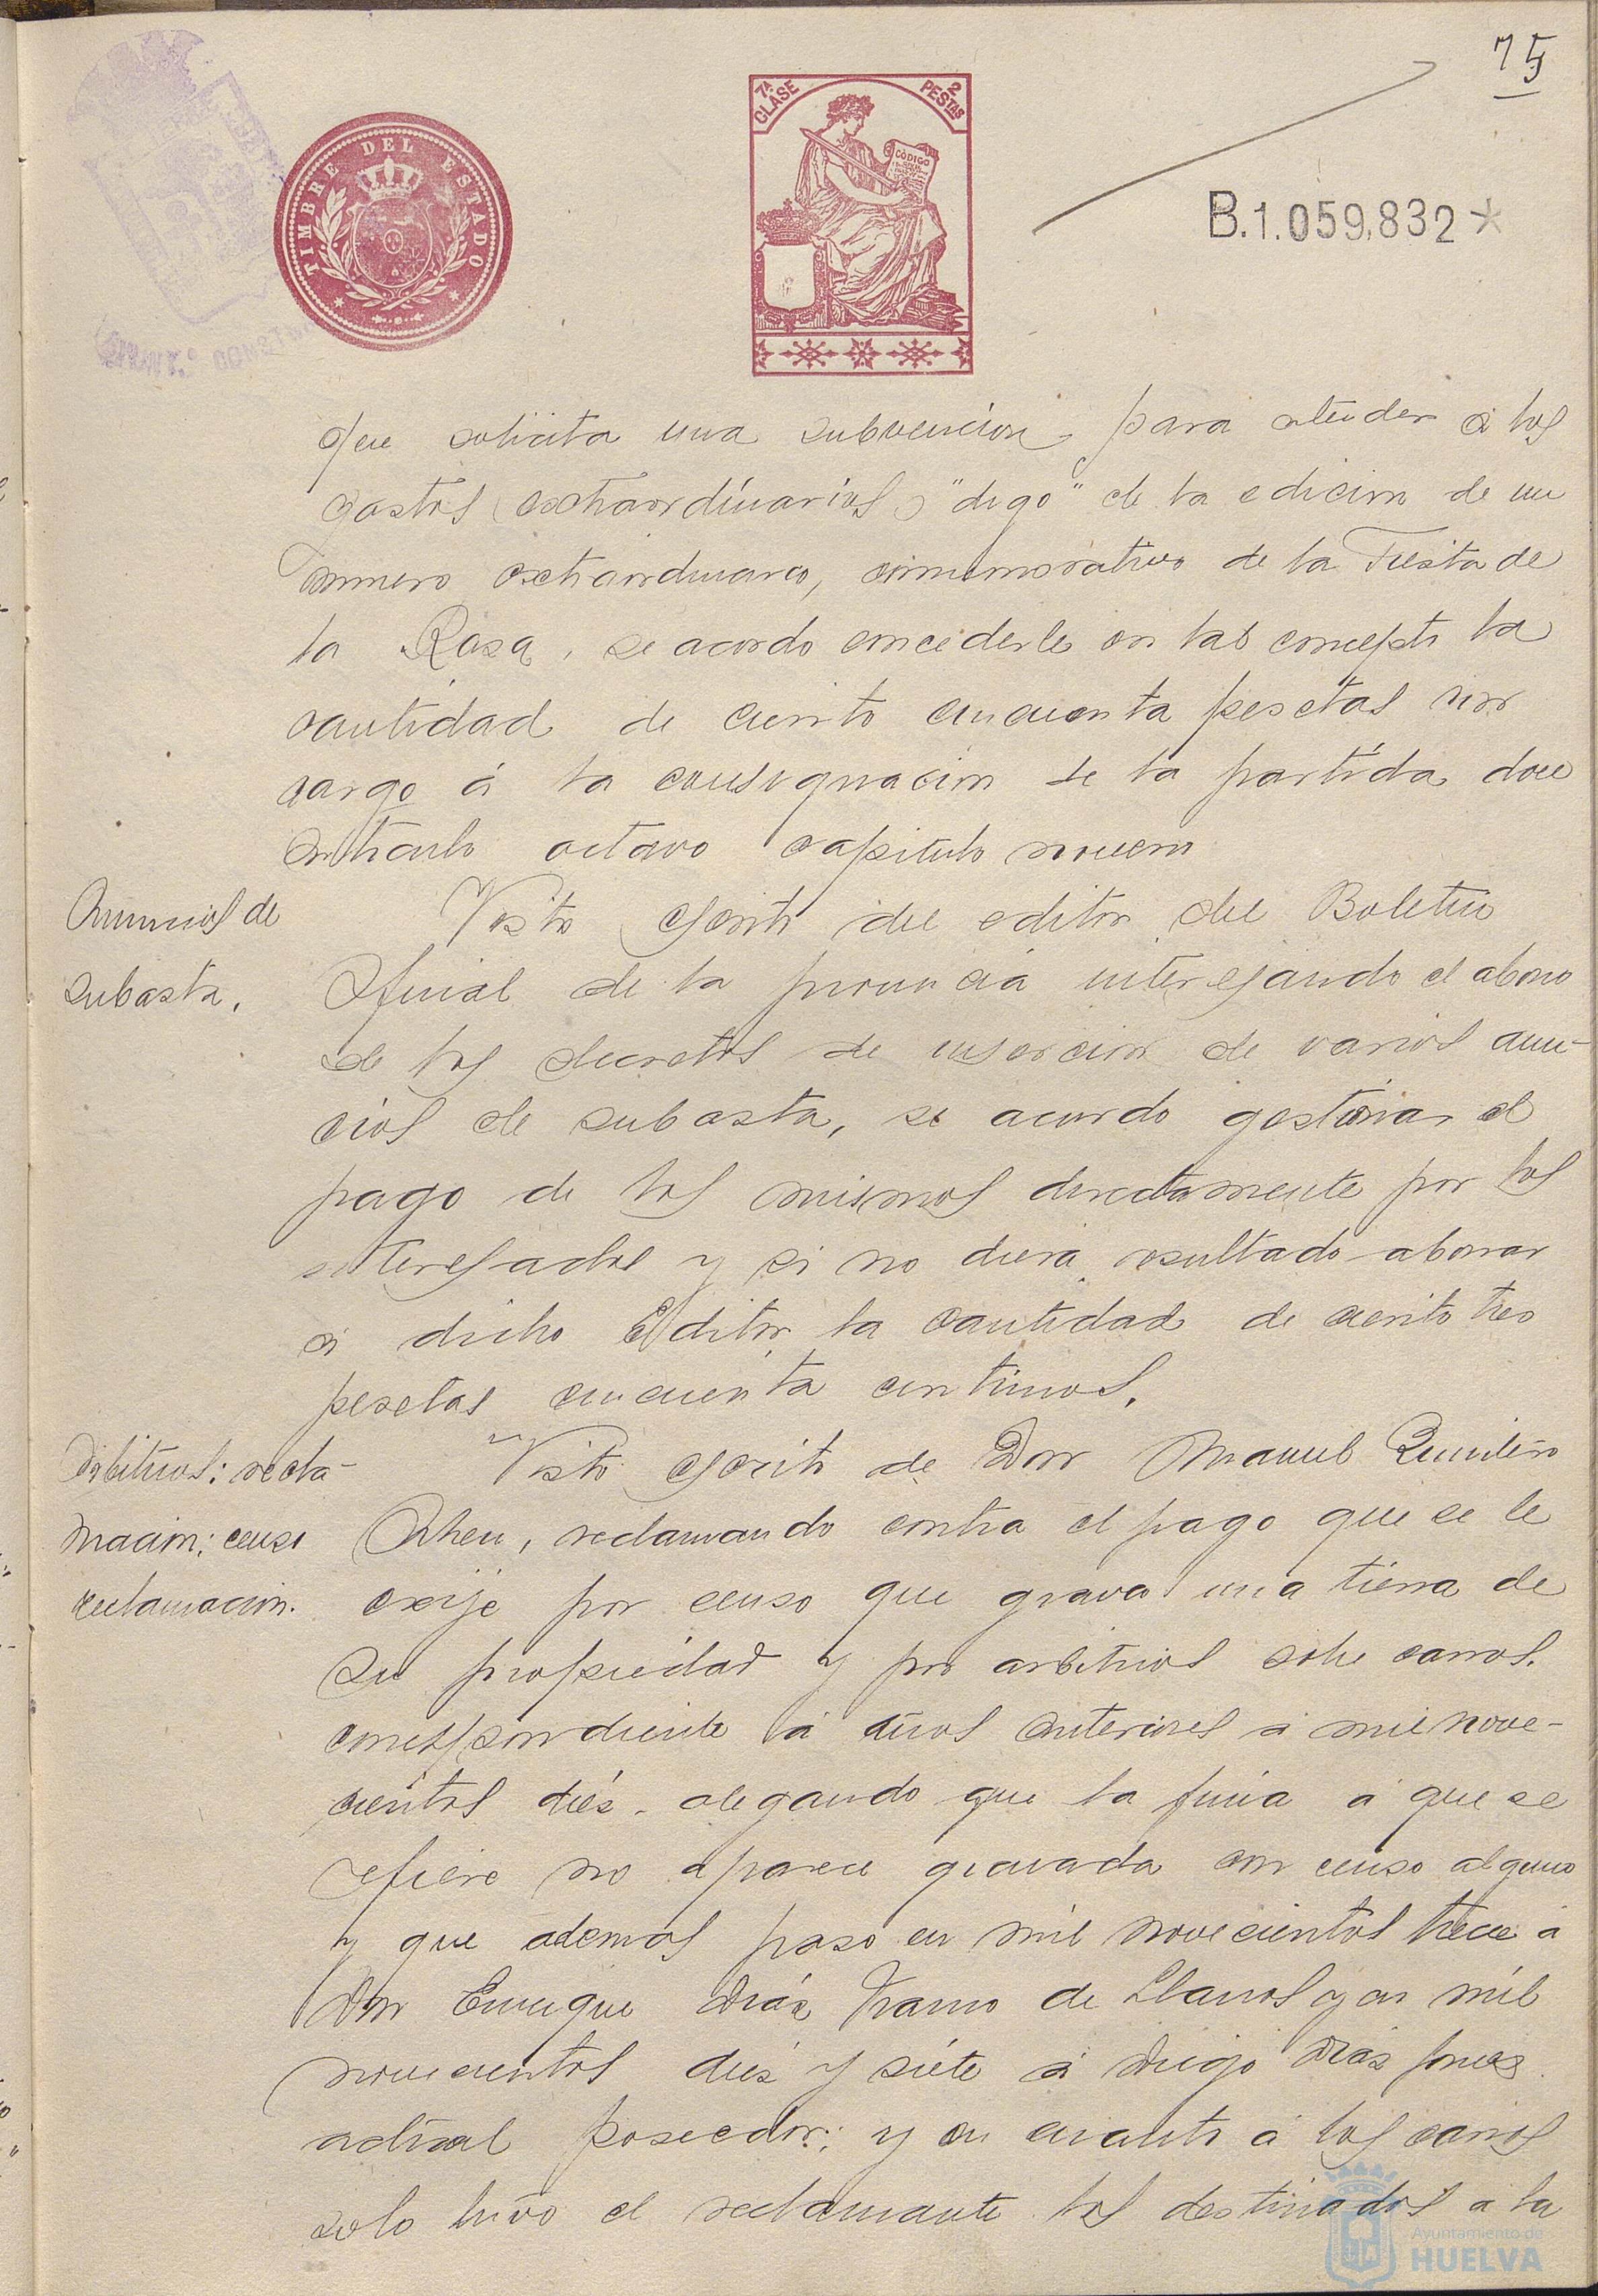 75
TIMBRE DEL ESTADO
7ª CLASE
2 PESTAS
CÓDIGO
B.1.059,832*
que solicita una subvencion para atender á los
gastos (extraordinarios) "digo" de la edicion de un
numero extraordinario, conmemorativo de la Fiesta de
la Raza, se acordo concederle en tal concepto la
cantidad de ciento cincuenta pesetas con
cargo á la consignacion de la partida doce
articulo octavo capitulo noveno
Anuncios de
subasta.
Visto escrito del editor del Boletin
Oficial de la provincia interesando el abono
de los de insercion de varios anun-
cios de subasta, se acordo gestionar el
pago de los mismos directamente por los
interesados y si no diera resultado abonar
á dicho Editor la cantidad de ciento tres
pesetas cincuenta centimos.
Arbitrios: recla-
macion; censo
reclamacion.
Visto escrito de Don Manuel Quintero
reclamando contra el pago que se le
exije por censo que grava una tierra de
su propiedad y por arbitrios sobre carros.
correspondiente á años anteriores á mil nove-
cientos diés. alegando que la finca á que se
refiere no aparece gravada con censo alguno
y que ademas paso en mil novecientos trece á
Don Enrique Diáz Franco de Llanos y en mil
novecientos diés y siete á Diego Diáz
actual poseedor; y en cuanto á los carros
solo tuvo el reclamante los destinados a la
Ayuntamiento de
HUELVA